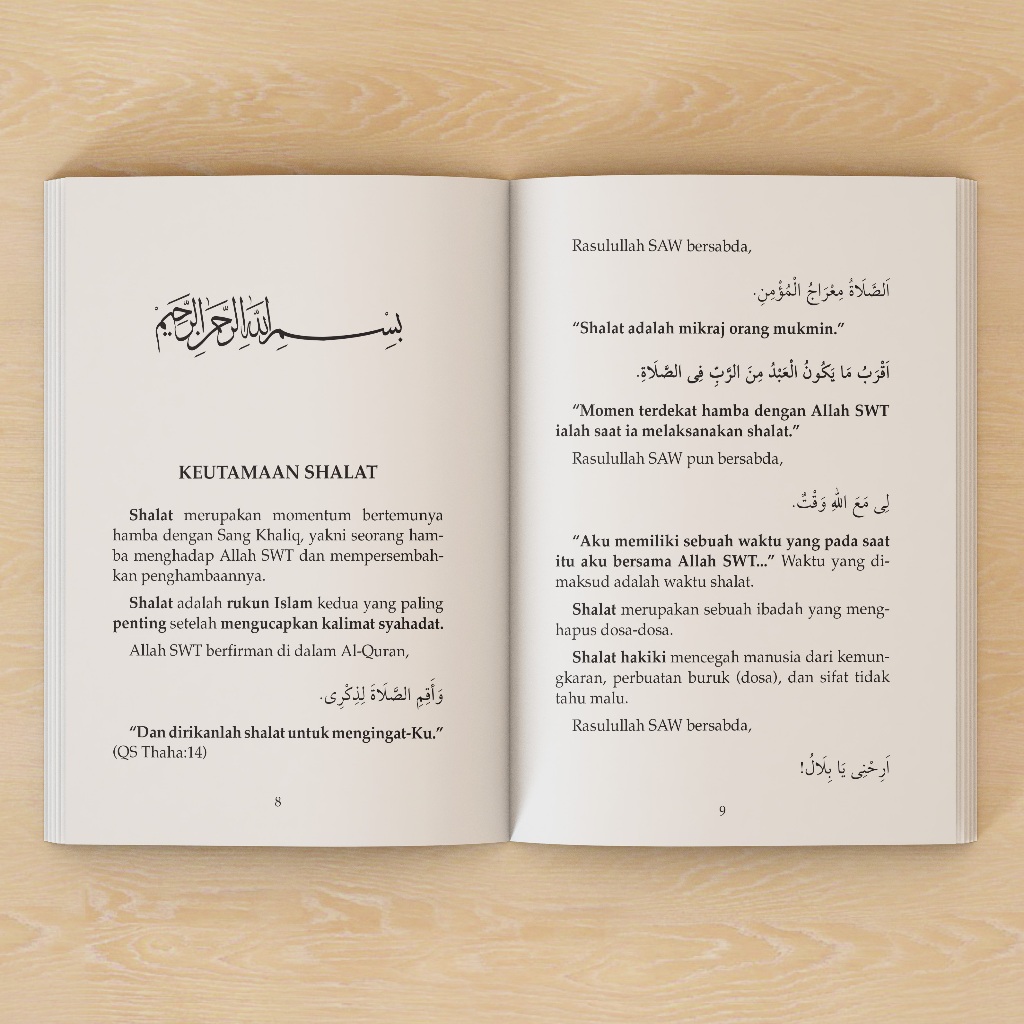 بِسْمِ اللهِ الرَّحْمٰنِ الرَّحِيْمِ
KEUTAMAAN SHALAT
Shalat merupakan momentum bertemunya
hamba dengan Sang Khaliq, yakni seorang ham-
ba menghadap Allah SWT dan mempersembah-
kan penghambaannya.
Shalat adalah rukun Islam kedua yang paling
penting setelah mengucapkan kalimat syahadat.
Allah SWT berfirman di dalam Al-Quran,
وَأَقِمِ الصَّلَاةَ لِذِكْرِى.
“Dan dirikanlah shalat untuk mengingat-Ku.”
(QS Thaha:14)
8
Rasulullah SAW bersabda,
اَلصَّلَاةُ مِعْرَاجُ الْمُؤْمِنِ.
“Shalat adalah mikraj orang mukmin.”
اَقْرَبُ مَا يَكُونُ الْعَبْدُ مِنَ الرَّبِّ فِى الصَّلَاةِ.
“Momen terdekat hamba dengan Allah SWT
ialah saat ia melaksanakan shalat.”
Rasulullah SAW pun bersabda,
لِى مَعَ اللهِ وَقْتٌ.
“Aku memiliki sebuah waktu yang pada saat
itu aku bersama Allah SWT...” Waktu yang di-
maksud adalah waktu shalat.
Shalat merupakan sebuah ibadah yang meng-
hapus dosa-dosa.
Shalat hakiki mencegah manusia dari kemun-
gkaran, perbuatan buruk (dosa), dan sifat tidak
tahu malu.
Rasulullah SAW bersabda,
اَرِحْنِى يَا بِلَالُ!
9